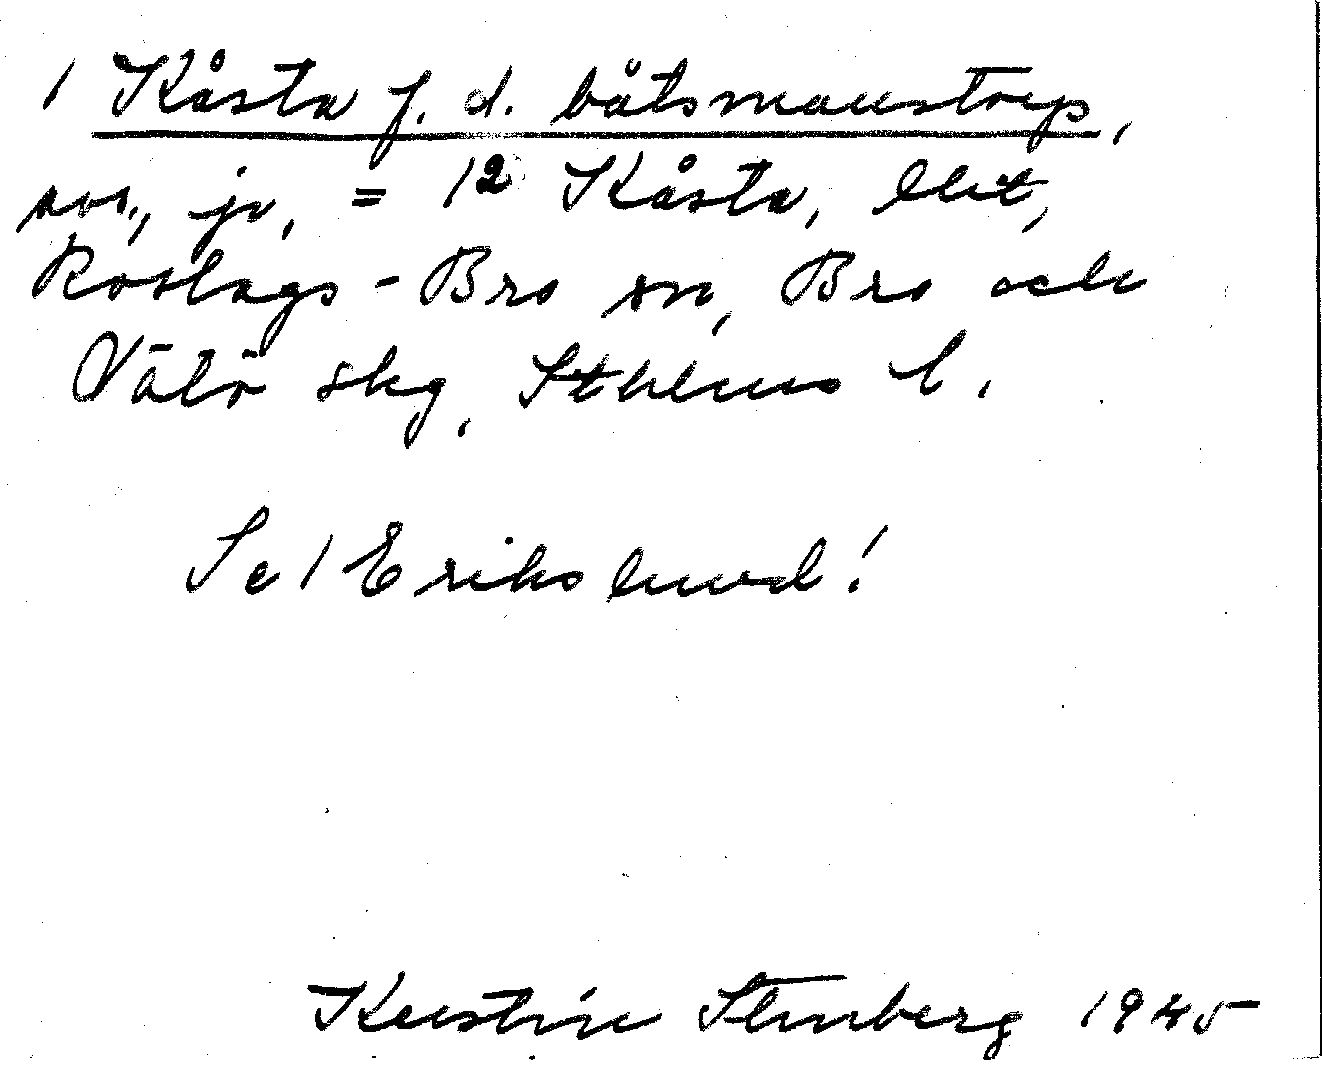 / Kåsta f. d. båtsmanstorp,
jv, = 1² Kåsta, lht,
Roslags-Bro sn, Bro och
Vätö skg, Sthlms l.
Se / Erikslund!
Kerstin Stenberg 1945